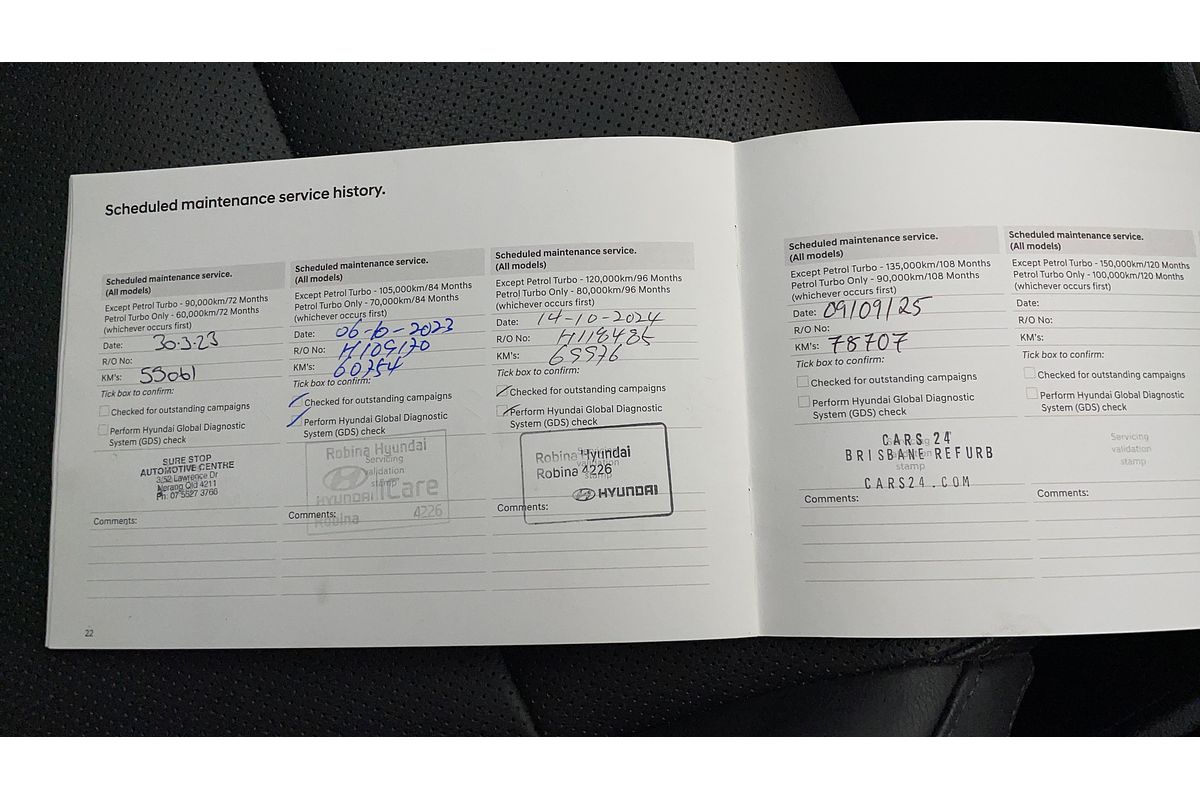 Scheduled maintenance service history.
Scheduled maintenance service.
(All models)
Except Petrol Turbo - 90,000km/72 Months
Petrol Turbo Only - 60,000km/72 Months
(whichever occurs first)
Date: 30.3.23
R/O No:
KM's: 55061
Tick box to confirm:
Checked for outstanding campaigns
Perform Hyundai Global Diagnostic
System (GDS) check
SURE STOP
AUTOMOTIVE CENTRE
3/52 Lawrence Dr
Nerang Qld 4211
Ph: 07 5527 3766
Comments:
22
Scheduled maintenance service.
(All models)
Except Petrol Turbo - 105,000km/84 Months
Petrol Turbo Only - 70,000km/84 Months
(whichever occurs first)
Date: 06-6-2023
R/O No: H109170
KM's: 60754
Tick box to confirm:
Checked for outstanding campaigns
Perform Hyundai Global Diagnostic
System (GDS) check
Robina Hyundai
Servicing
validation
stamp
HYUNDAI iCare
Robina 4226
Comments:
Scheduled maintenance service.
(All models)
Except Petrol Turbo - 120,000km/96 Months
Petrol Turbo Only - 80,000km/96 Months
(whichever occurs first)
Date: 14-10-2024
R/O No: H118485
KM's:
Tick box to confirm:
Checked for outstanding campaigns
Perform Hyundai Global Diagnostic
System (GDS) check
Robina Hyundai
Robina 4226
validation
stamp
HYUNDAI
Comments:
Scheduled maintenance service.
(All models)
Except Petrol Turbo - 135,000km/108 Months
Petrol Turbo Only - 90,000km/108 Months
(whichever occurs first)
Date: 09/09/25
R/O No:
KM's: 78707
Tick box to confirm:
Checked for outstanding campaigns
Perform Hyundai Global Diagnostic
System (GDS) check
CARS 24
BRISBANE REFURB
stamp
CARS24.COM
Comments:
Scheduled maintenance service.
(All models)
Except Petrol Turbo - 150,000km/120 Months
Petrol Turbo Only - 100,000km/120 Months
(whichever occurs first)
Date:
R/O No:
KM's:
Tick box to confirm:
Checked for outstanding campaigns
Perform Hyundai Global Diagnostic
System (GDS) check
Servicing
validation
stamp
Comments: